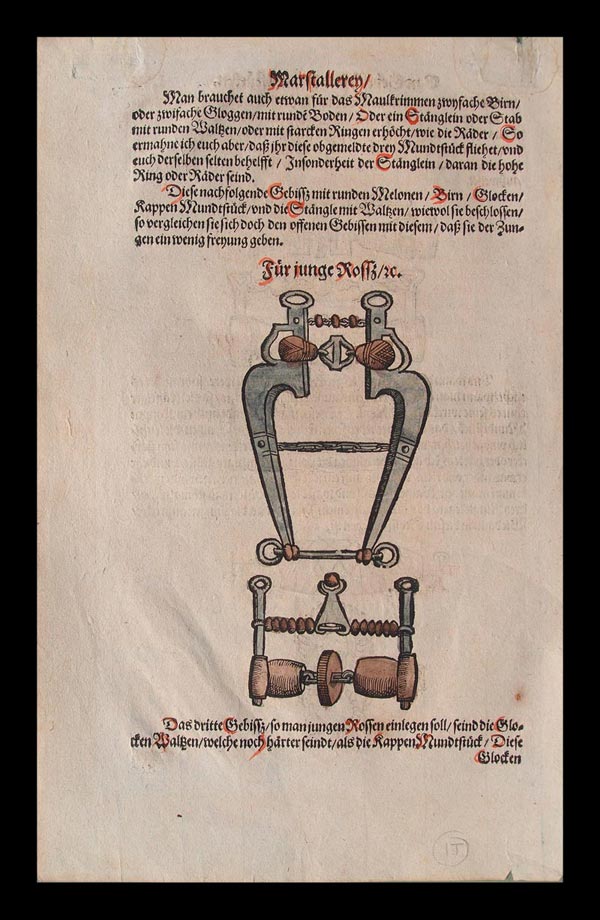 Marstallerey/
Man brauchet auch etwan für das Maulkrimmen zwyfache Birn/
oder zwifache Gloggen/mit rundē Boden/ Oder ein Stänglein oder Stab
mit runden Waltzen/oder mit starcken Ringen erhöcht/wie die Räder/ So
ermahne ich euch aber/daß ihr diese obgemeldte drey Mundtstück fliehet/vnd
euch derselben selten behelfft/ Insonderheit der Stänglein/daran die hohe
Ring oder Räder seind.
Diese nachfolgende Gebissz mit runden Melonen/ Birn/ Glocken/
Kappen Mundtstück/vnd die Stängle mit Waltzen/ wiewol sie beschlossen/
so vergleichen sie sich doch den offenen Gebissen mit diesem/ daß sie der Zun-
gen ein wenig freyung geben.
Für junge Rossz/ꝛc.
Das dritte Gebissz/so man jungen Rossen einlegen soll/ seind die Glo-
cken Waltzen/welche noch härter seindt/als die Kappen Mundtstück/ Diese
Glocken